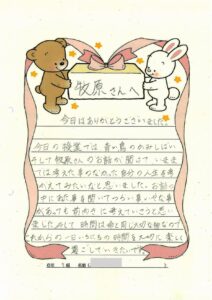 牧原さんへ
今日はありがとうございました。
今日の授業では青い鳥のかみしばい
そして牧原さんのお話が聞けて、今まで
では考えた事なかった自分の人生を考
がえてみたいなと思いました。お話の
中にあった事を聞いてつらい事、いやな事
があっても前向きに考えていこうと思い
ました。そして時間は命と同じ大切な物なので
これからの一日いちにちの時間を大切に楽しく
過ごしていきたいです。